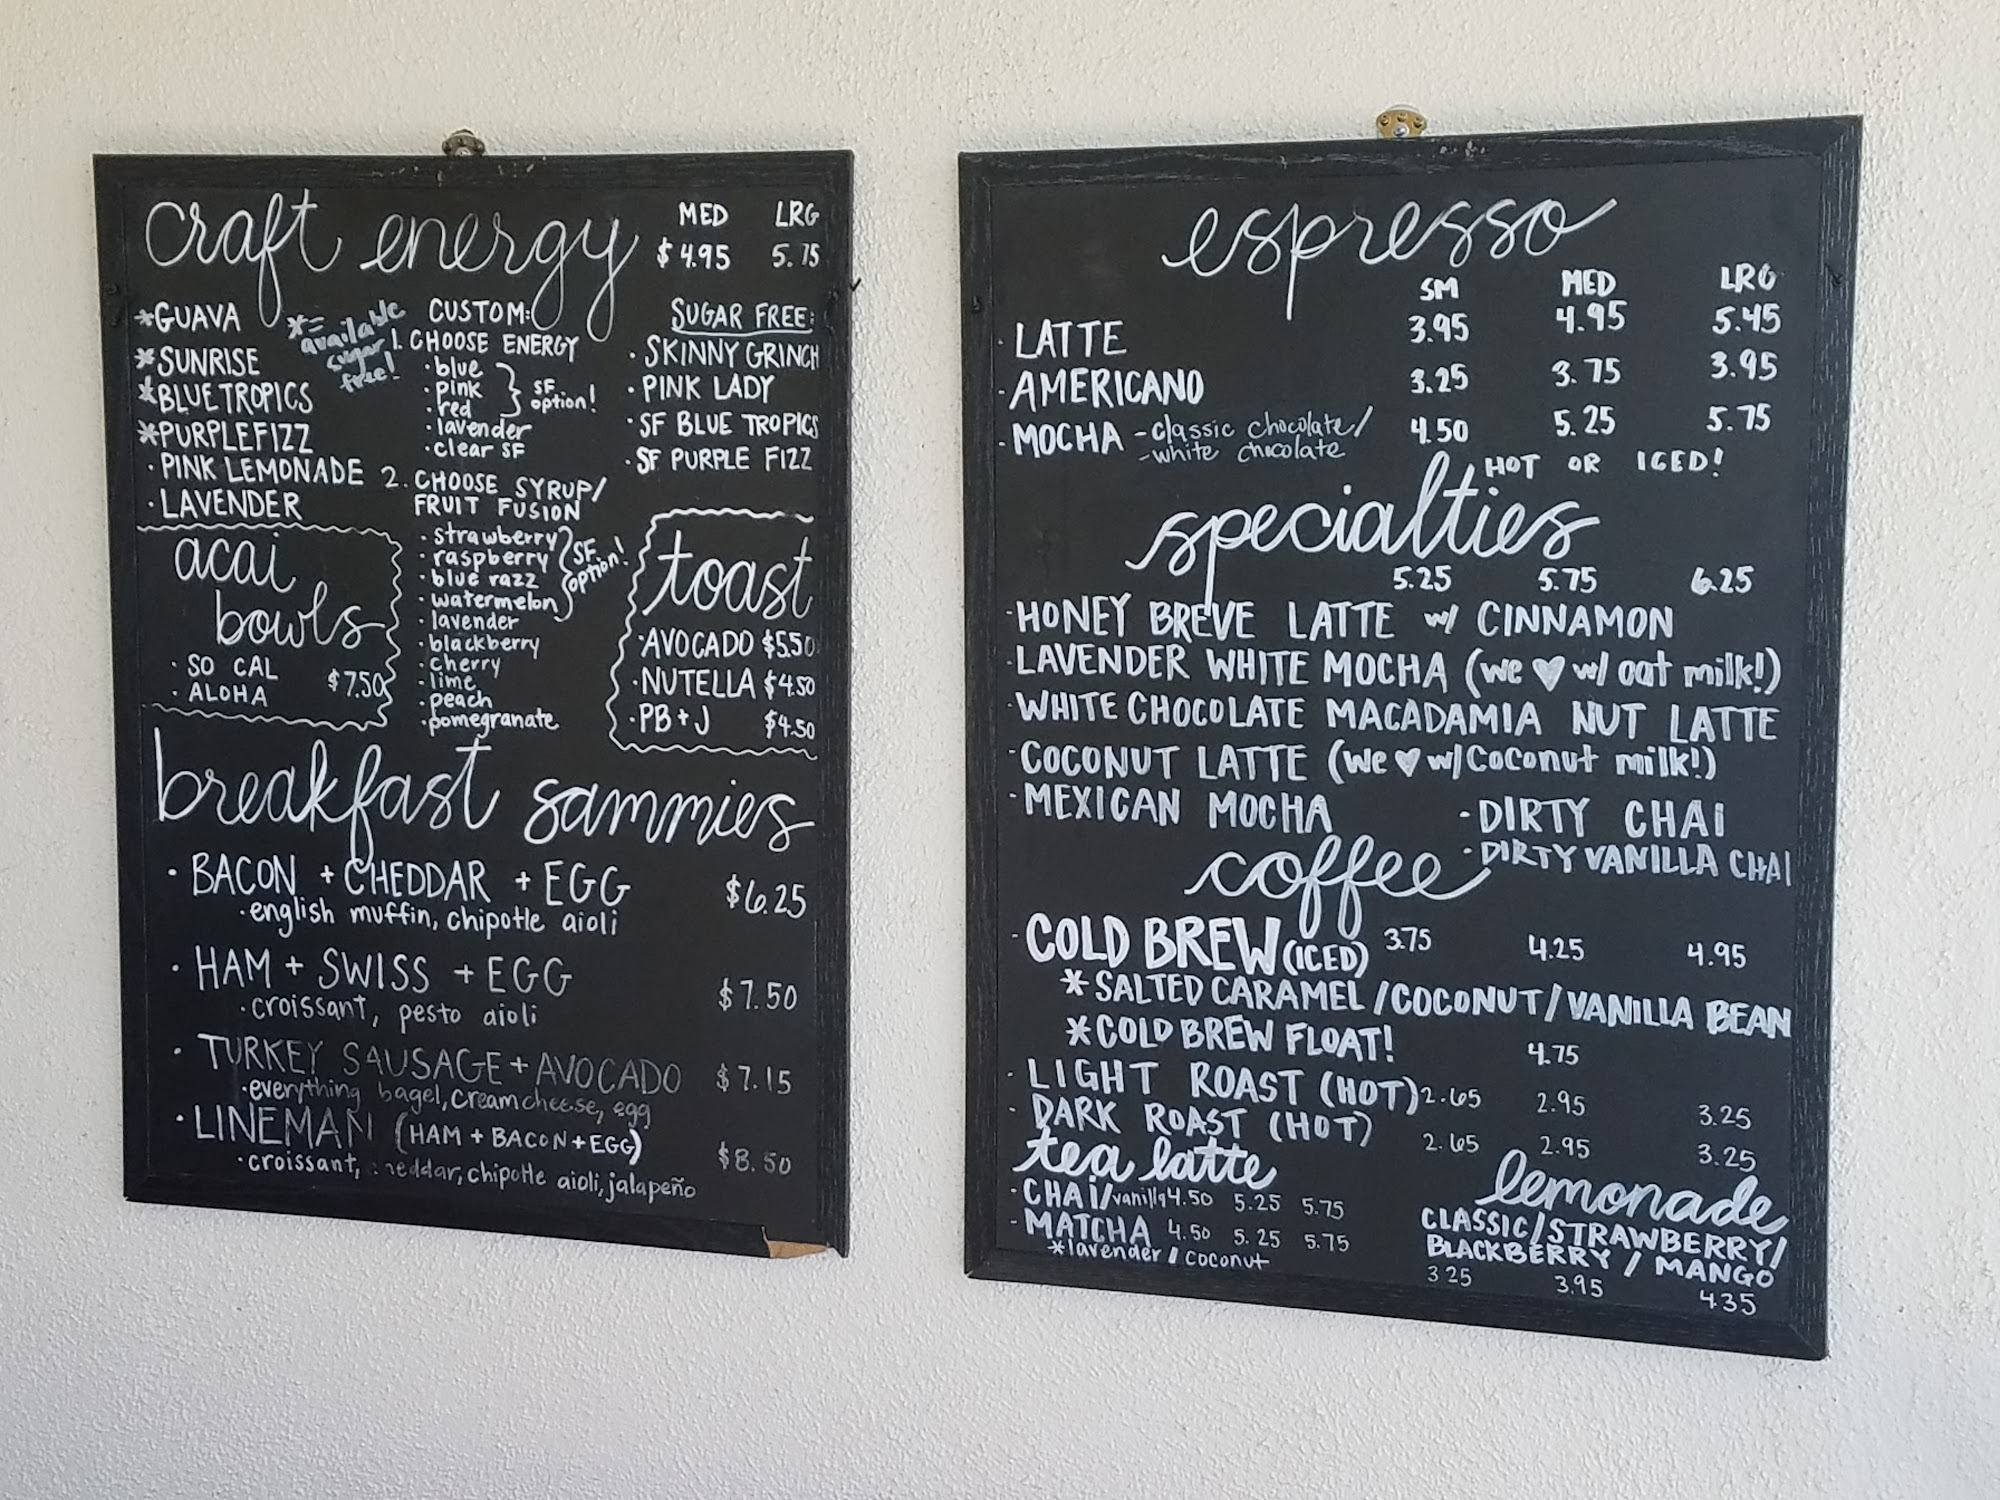 craft energy MED LRG
$4.95 5.75
*GUAVA
*SUNRISE
*BLUE TROPICS
*PURPLE FIZZ
· PINK LEMONADE
· LAVENDER
*= available sugar free!
CUSTOM:
1. CHOOSE ENERGY
· blue
· pink
· red
SF option!
· lavender
· clear SF
2. CHOOSE SYRUP/
FRUIT FUSION
· strawberry
· raspberry
· blue razz
· watermelon
SF option!
· lavender
· blackberry
· cherry
· lime
· peach
· pomegranate
SUGAR FREE:
· SKINNY GRINCH
· PINK LADY
· SF BLUE TROPICS
· SF PURPLE FIZZ
acai
bowls
· SO CAL
· ALOHA $7.50
toast
· AVOCADO $5.50
· NUTELLA $4.50
· PB + J $4.50
breakfast sammies
· BACON + CHEDDAR + EGG $6.25
· english muffin, chipotle aioli
· HAM + SWISS + EGG $7.50
· croissant, pesto aioli
· TURKEY SAUSAGE + AVOCADO $7.15
· everything bagel, cream cheese, egg
· LINEMAN (HAM + BACON + EGG) $8.50
· croissant, cheddar, chipotle aioli, jalapeño
espresso
SM MED LRG
· LATTE 3.95 4.95 5.45
· AMERICANO 3.25 3.75 3.95
· MOCHA - classic chocolate/ 4.50 5.25 5.75
- white chocolate
HOT OR ICED!
specialties
5.25 5.75 6.25
· HONEY BREVE LATTE w/ CINNAMON
· LAVENDER WHITE MOCHA (we ♥ w/ oat milk!)
· WHITE CHOCOLATE MACADAMIA NUT LATTE
· COCONUT LATTE (we ♥ w/ coconut milk!)
· MEXICAN MOCHA · DIRTY CHAI
· DIRTY VANILLA CHAI
coffee
· COLD BREW (ICED) 3.75 4.25 4.95
* SALTED CARAMEL / COCONUT / VANILLA BEAN
* COLD BREW FLOAT! 4.75
· LIGHT ROAST (HOT) 2.65 2.95 3.25
· DARK ROAST (HOT) 2.65 2.95 3.25
tea latte
· CHAI/vanilla 4.50 5.25 5.75
· MATCHA 4.50 5.25 5.75
*lavender / coconut
lemonade
CLASSIC/STRAWBERRY/
BLACKBERRY / MANGO
3.25 3.95 4.35